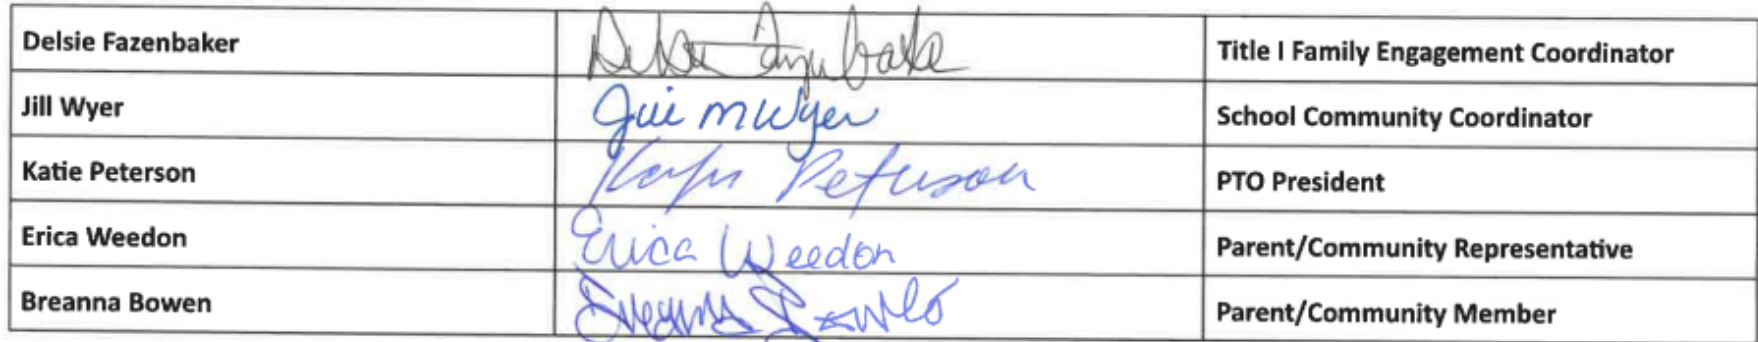 Delsie Fazenbaker Delsie Fazenbake Title I Family Engagement Coordinator
Jill Wyer Jill M Wyer School Community Coordinator
Katie Peterson Peterson PTO President
Erica Weedon Erica Weedon Parent/Community Representative
Breanna Bowen Parent/Community Member